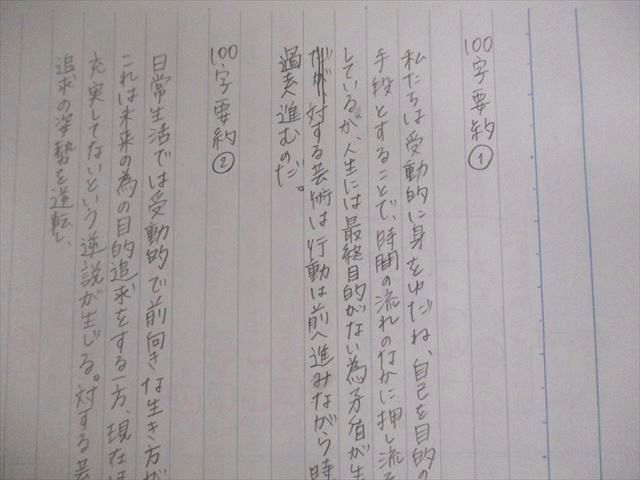 100字要約①
私たちは受動的に身をゆだね、自己を目的の
手段とすることで、時間の流れのなかに押し流
しているが、人生には最終目的がない為矛盾が生
対する芸術は行動は前へ進みながら時
過去へ進むのだ。
100字要約②
日常生活では受動的で前向きな生き方が
これは未来の為の目的追求をする一方、現在は
充実してないという逆説が生じる。対する芸
追求の姿勢を逆転し、